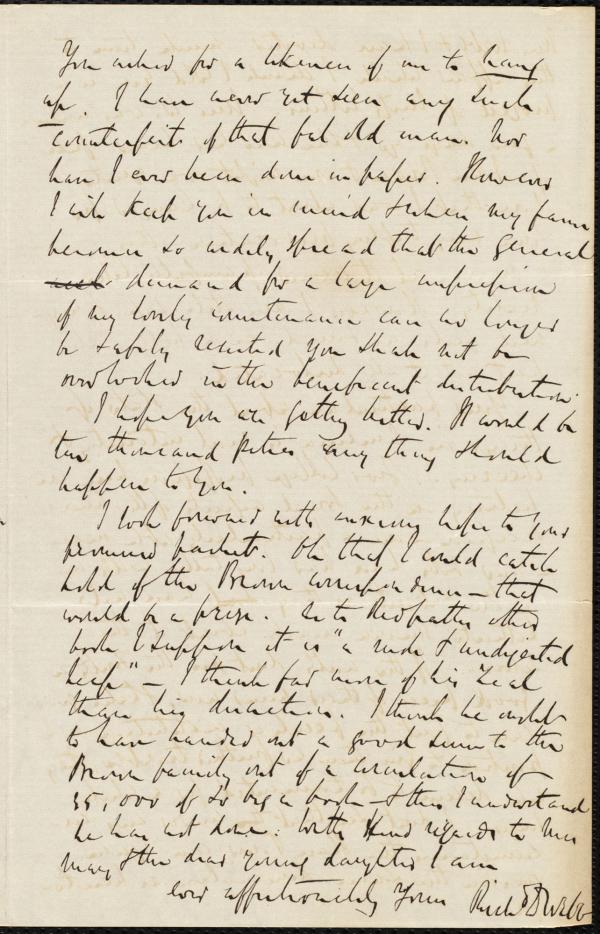 You asked for a likeness of me to hang
up. I have never yet seen any such
counterfeits of that fat old man. Nor
have I ever been done in paper. However
I will keep you in mind & when my fame
becomes so widely spread that the general
demand for a large impression
of my lovely countenance can no longer
be safely resisted you shall not be
overlooked in the beneficent distribution.
I hope you are getting better. It would be
ten thousand pities any thing should
happen to you.
I look forward with anxious hope to your
promised packet. Oh that I could catch
hold of the Brown correspondence — that
would be a prize. As to Redpath's other
book I suppose it is "a rude & undigested
heap" — I think far more of his zeal
than his discretion. I think he ought
to have handed out a good sum to the
Brown family out of a circulation of
35,000 of so big a book — & this I understand
he has not done. With kind regards to Mrs
May & the dear young daughter I am
ever affectionately yours Richd D Webb